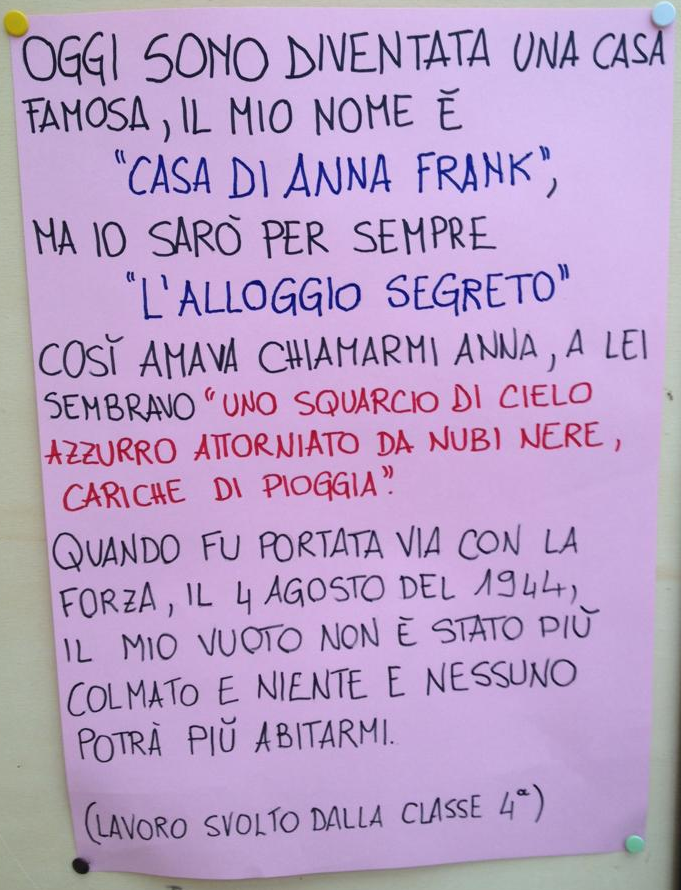 OGGI SONO DIVENTATA UNA CASA
FAMOSA, IL MIO NOME Ĕ
"CASA DI ANNA FRANK",
MA IO SARÒ PER SEMPRE
"L'ALLOGGIO SEGRETO"
COSĬ AMAVA CHIAMARMI ANNA, A LEI
SEMBRAVO "UNO SQUARCIO DI CIELO
AZZURRO ATTORNIATO DA NUBI NERE,
CARICHE DI PIOGGIA".
QUANDO FU PORTATA VIA CON LA
FORZA, IL 4 AGOSTO DEL 1944,
IL MIO VUOTO NON È STATO PIŬ
COLMATO E NIENTE E NESSUNO
POTRÀ PIŬ ABITARMI.
(LAVORO SVOLTO DALLA CLASSE 4ª)